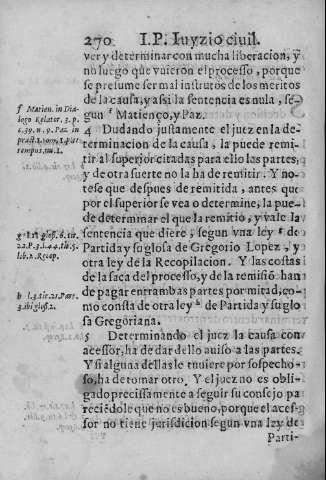 270 I.P. Iuyzio ciuil.
ver y determinar con mucha liberacion, y
no luego que vuieron el processo, porque
se presume ser mal instrutos de los meritos
de la causa, y assi la sentencia es nula, se-
gun f Matienço, y Paz.
4 Dudando justamente el juez en la de-
terminacion de la causa, la puede remi-
tir al superior citadas para ello las partes,
y de otra suerte no la ha de remitir. Y no-
tese que despues de remitida, antes que
por el superior se vea o determine, la pue-
de determinar el que la remitio, y vale la
sentencia que diere, segun vna ley g de
Partida y su glosa de Gregorio Lopez, y
otra ley de la Recopilacion. Y las costas
de la saca del processo, y de la remisiõ han
de pagar entrambas partes por mitad, co-
mo consta de otra ley h de Partida y su glo
sa Gregoriana.
5 Determinando el juez la causa con
acessor, ha de dar dello auiso a las partes.
Y si alguna dellas le tuuiere por sospecho-
so, ha de tomar otro. Y el juez no es obli-
gado precissamente a seguir su consejo pa
reciẽdole que no es bueno, porque el aces-
sor no tiene jurisdicion segun vna ley de
Parti-
f Matien. in Dia-
logo Relator. 3. p.
c. 39. n. 9. Paz in
tempus, nu. 1.
22. P. 3. l. 4. tit. 5.
lib. 2. Recop.
h l. 3. tit. 21. Part.
3. ibi glos. 2.